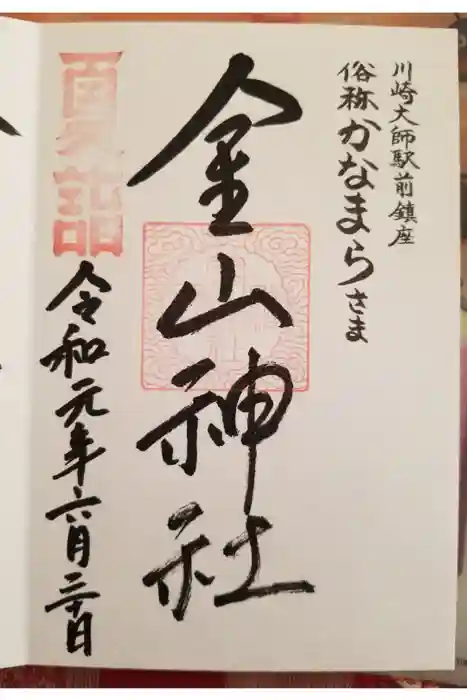 川崎大師駅前鎮座
俗称かなまらさま
金山神社
夏詣
令和元年六月三十日